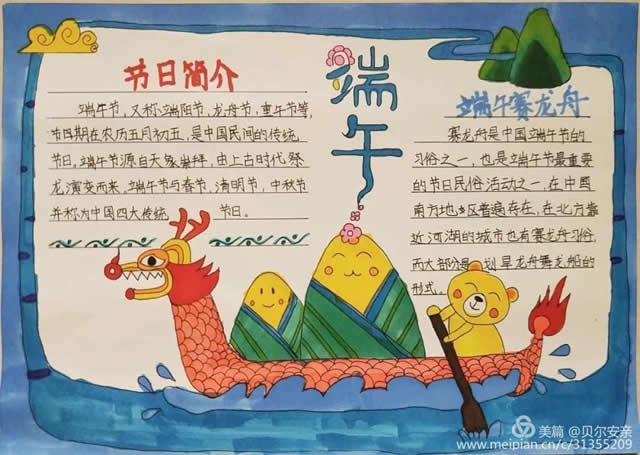 节日简介
端午节,又称端阳节,龙舟节,重午节等,
节日期在农历五月初五,是中国民间的传统
节日,端午节源自天象崇拜,由上古时代祭
龙演变而来,端午节与春节,清明节,中秋节
并称为中国四大传统节日。
端午
端午赛龙舟
赛龙舟是中国端午节的
习俗之一,也是端午节最重要
的节日民俗活动之一,在中国
南方地区普遍存在,在北方靠
近河湖的城市也有赛龙舟习俗,
而大部分是划旱龙舟舞龙船的
形式。
美篇 @贝尔安亲
www.meipian.cn/c/31355209